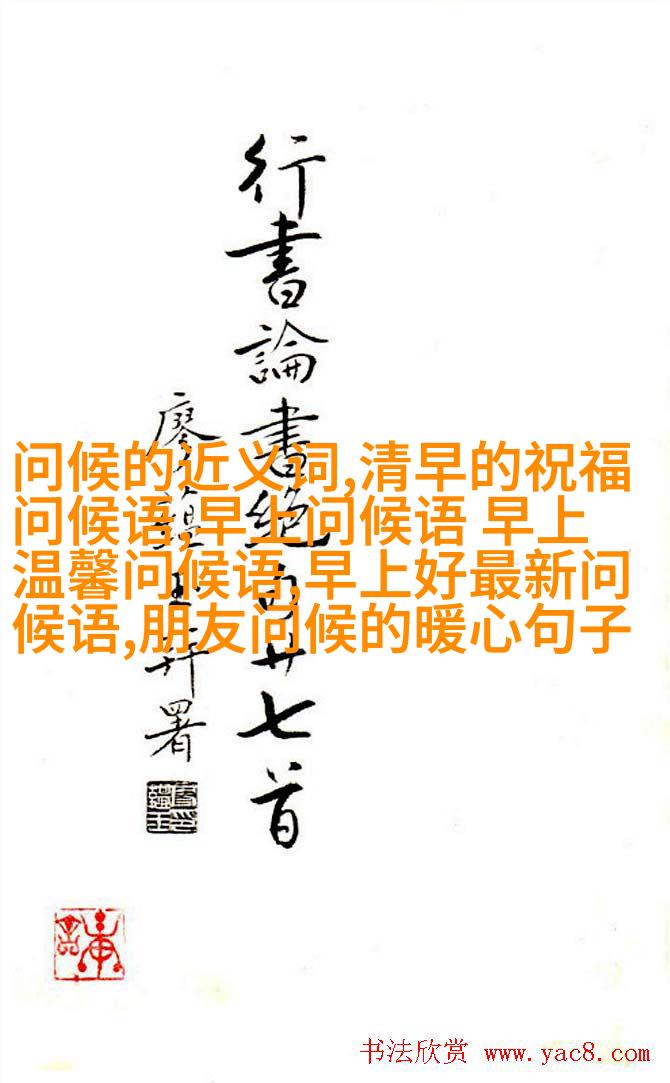 行書論書絶句廿七首
廖蘊玉拜署
问候的近义词,清早的祝福
问候语,早上问候语 早上
温馨问候语,早上好最新问
候语,朋友问候的暖心句子
书法欣赏 www.yac8.com